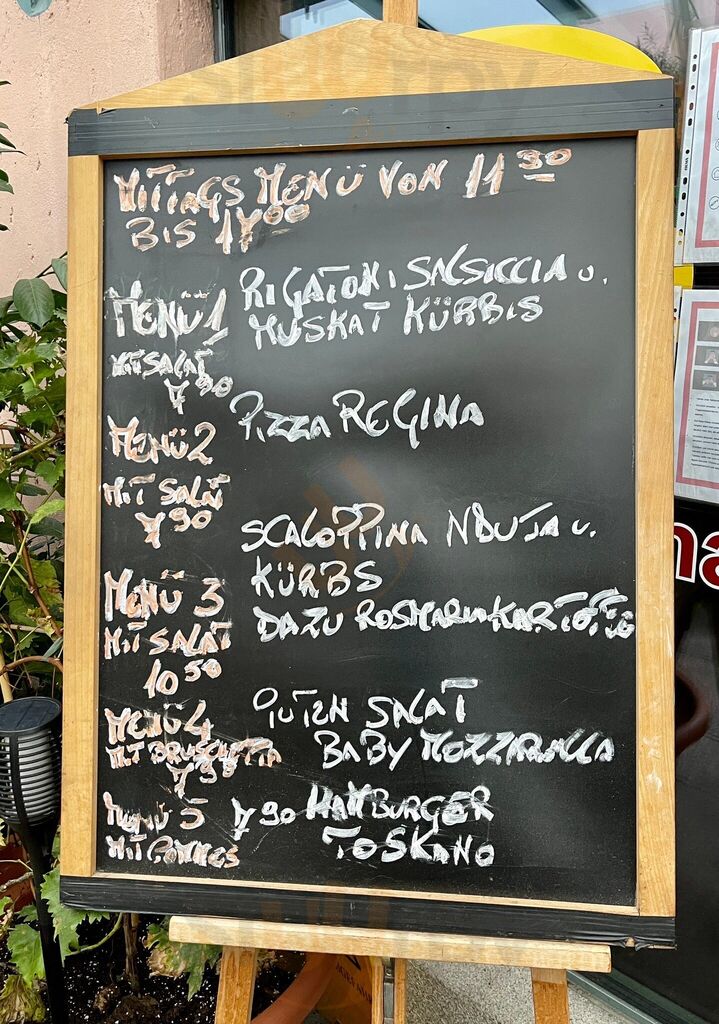 MITTAGS MENÜ VON 11 30
BIS 14 00
MENÜ 1
MIT SALAT
7 90
RIGATONI SALSICCIA U.
MUSKAT KÜRBIS
MENÜ 2
MIT SALAT
7 90
PIZZA REGINA
MENÜ 3
MIT SALAT
10 50
SCALOPPINA NDUJA U.
KÜRBS
DAZU ROSMARINKARTOFFEL
MENÜ 4
MIT BRUSCHETTA
7 90
PUTEN SALAT
BABY MOZZARELLA
MENÜ 5 7 90 HAMBURGER
MIT POMMES TOSKANO